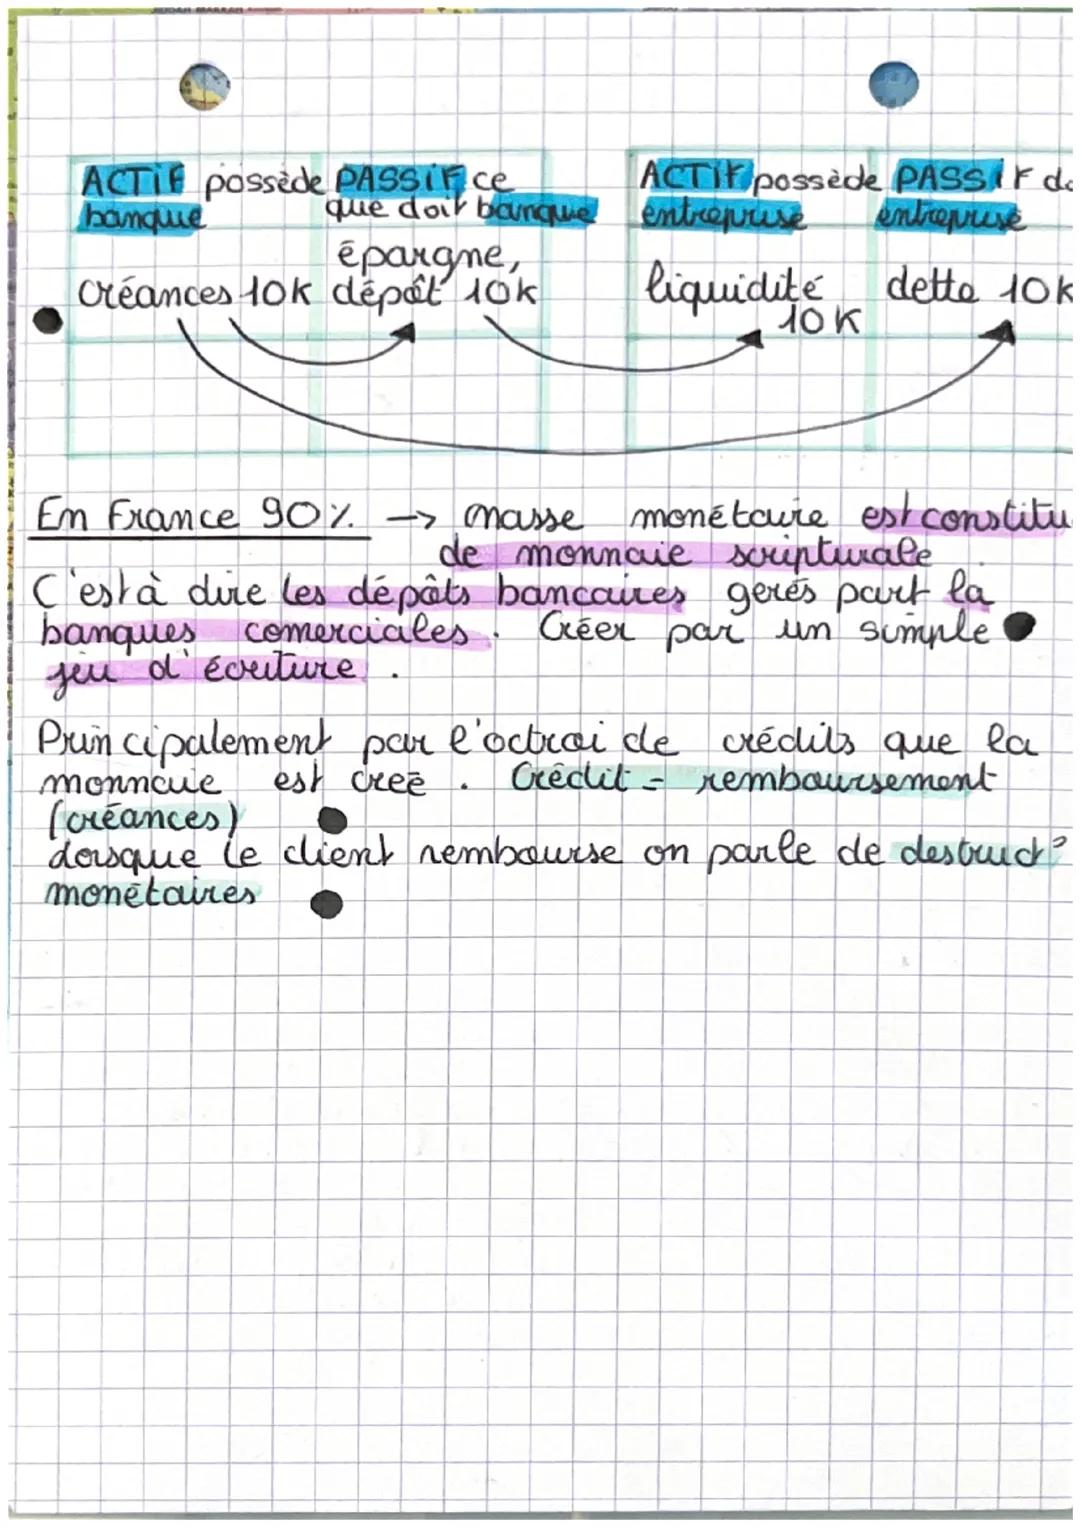 ACTIF possède PASSIF ce
banque que doit banque
épargne,
créances 10k dépôt 10k
ACTIF possède PASSIF do
entreprise entreprise
liquidité dette 10k
10K
En France 90% → masse monétaire est constitu
de monnaie scripturale
C'est à dire les dépôts bancaires gerés part la
banques comerciales. Créer par un simple
jeu d'écriture.
Principalement par l'octroi de crédits que la
monnaie est creé. Crédit = remboursement
(créances)
Lorsque le client rembourse on parle de destruct°
monétaires